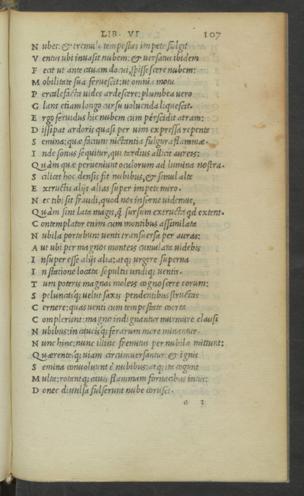 LIB. VI 107
Nubes: & tremulo tempestas impete fulgit
Ventus ubi inuasit nubem: & uersatus ibidem
Fecit ut ante cauam docui, spissescere nubem:
Mobilitate sua feruescit: ut omnia motu
Percalefacta uides ardescere: plumbea uero
Glans etiam longo cursu uoluenda liquescit.
Ergo feruidus hic nubem cum perscidit atram:
Dissipat ardoris quasi per uim expressa repente
Semina; quæ faciunt nictantia fulgura flammæ.
Inde sonus sequitur, qui tardius allicit aures:
Quàm quæ perueniunt oculorum ad lumina nostra.
Scilicet hoc densis fit nubibus, & simul alte
Exructis alijs alias super impete miro.
Nec tibi sit fraudi, quod nos inferne uidemus,
Quàm sint lata magis, q̃ sursum exructa qd extent.
Contemplator enim cum montibus assimilata
Nubila portabunt uenti transuersa per auras:
Aut ubi per magnos monteis cumulata uidebis
Insuper esse alijs alia; atq; urgere superna
In statione locata sepultis undiq; uentis.
Tum poteris magnas moleis cognoscere eorum:
Speluncasq; uelut saxis pendentibus structas
Cernere; quas uenti cum tempestate coorta
Complerunt: magno indignantur murmure clausi
Nubibus: in caueisq; ferarum more minantur.
Nunc hinc, nunc illinc fremitus per nubila mittunt:
Quærentesq; uiam circumuersantur. & ignis
Semina conuoluunt è nubibus: atq; ita cogunt
Multa; rotantq; cauis flammam fornacibus intus:
Donec diuulsa fulserunt nube corusci.